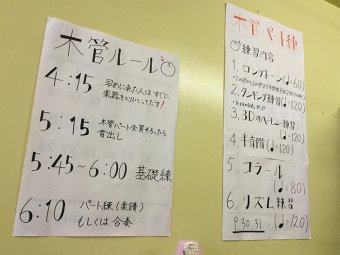 木管ルール
4:15 早めに来た人は すぐに
楽器を
5:15 木管パート全員そろったら
音出し
5:45~6:00 基礎練
6:10 パート練(楽譜)
もしくは 合奏
木管パート練
◎練習内容
1. ロングトーン(♩=60)
2. タンギング練習(♩=120)
3. 3Dのハーモニー練習
4. 半音階(♩=120)
5. コラール
(♩=80)
6. リズム練習
P.30.31 (♩=120)